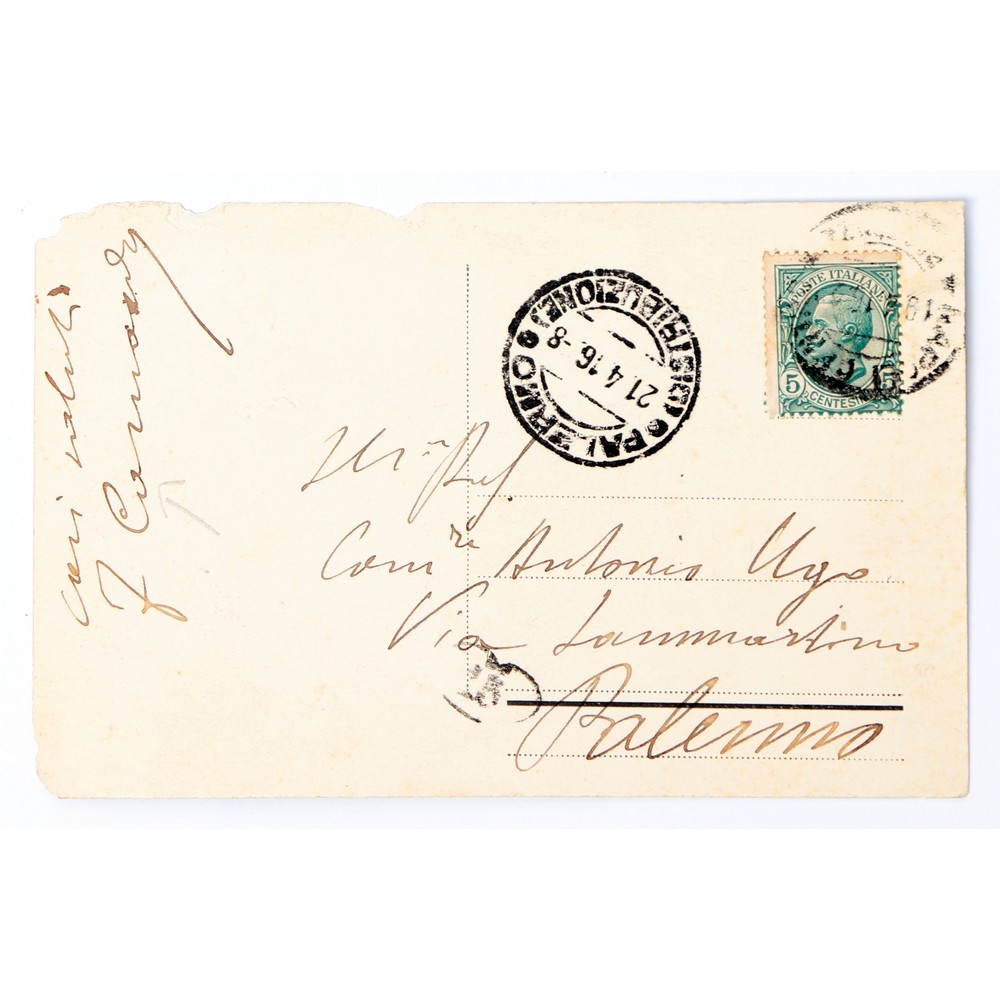 Cari saluti
PALERMO (DISTRIBUZIONE)
21.4.16.-8
POSTE ITALIANE
5 5
CENTESIMI
18
Ill. Prof.
Comm.re Antonio Ugo
Via Sammartino
Palermo